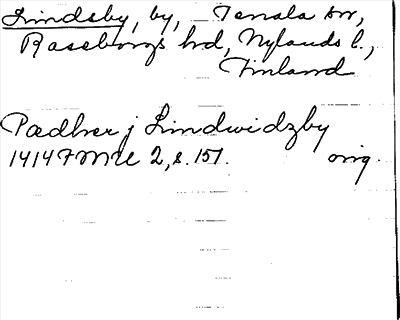 Lindsby, by, Tenala sn,
Raseborgs hd, Nylands l.,
Finland
Pædher j Lindwidzby
1414 FMU 2, s. 151. orig.